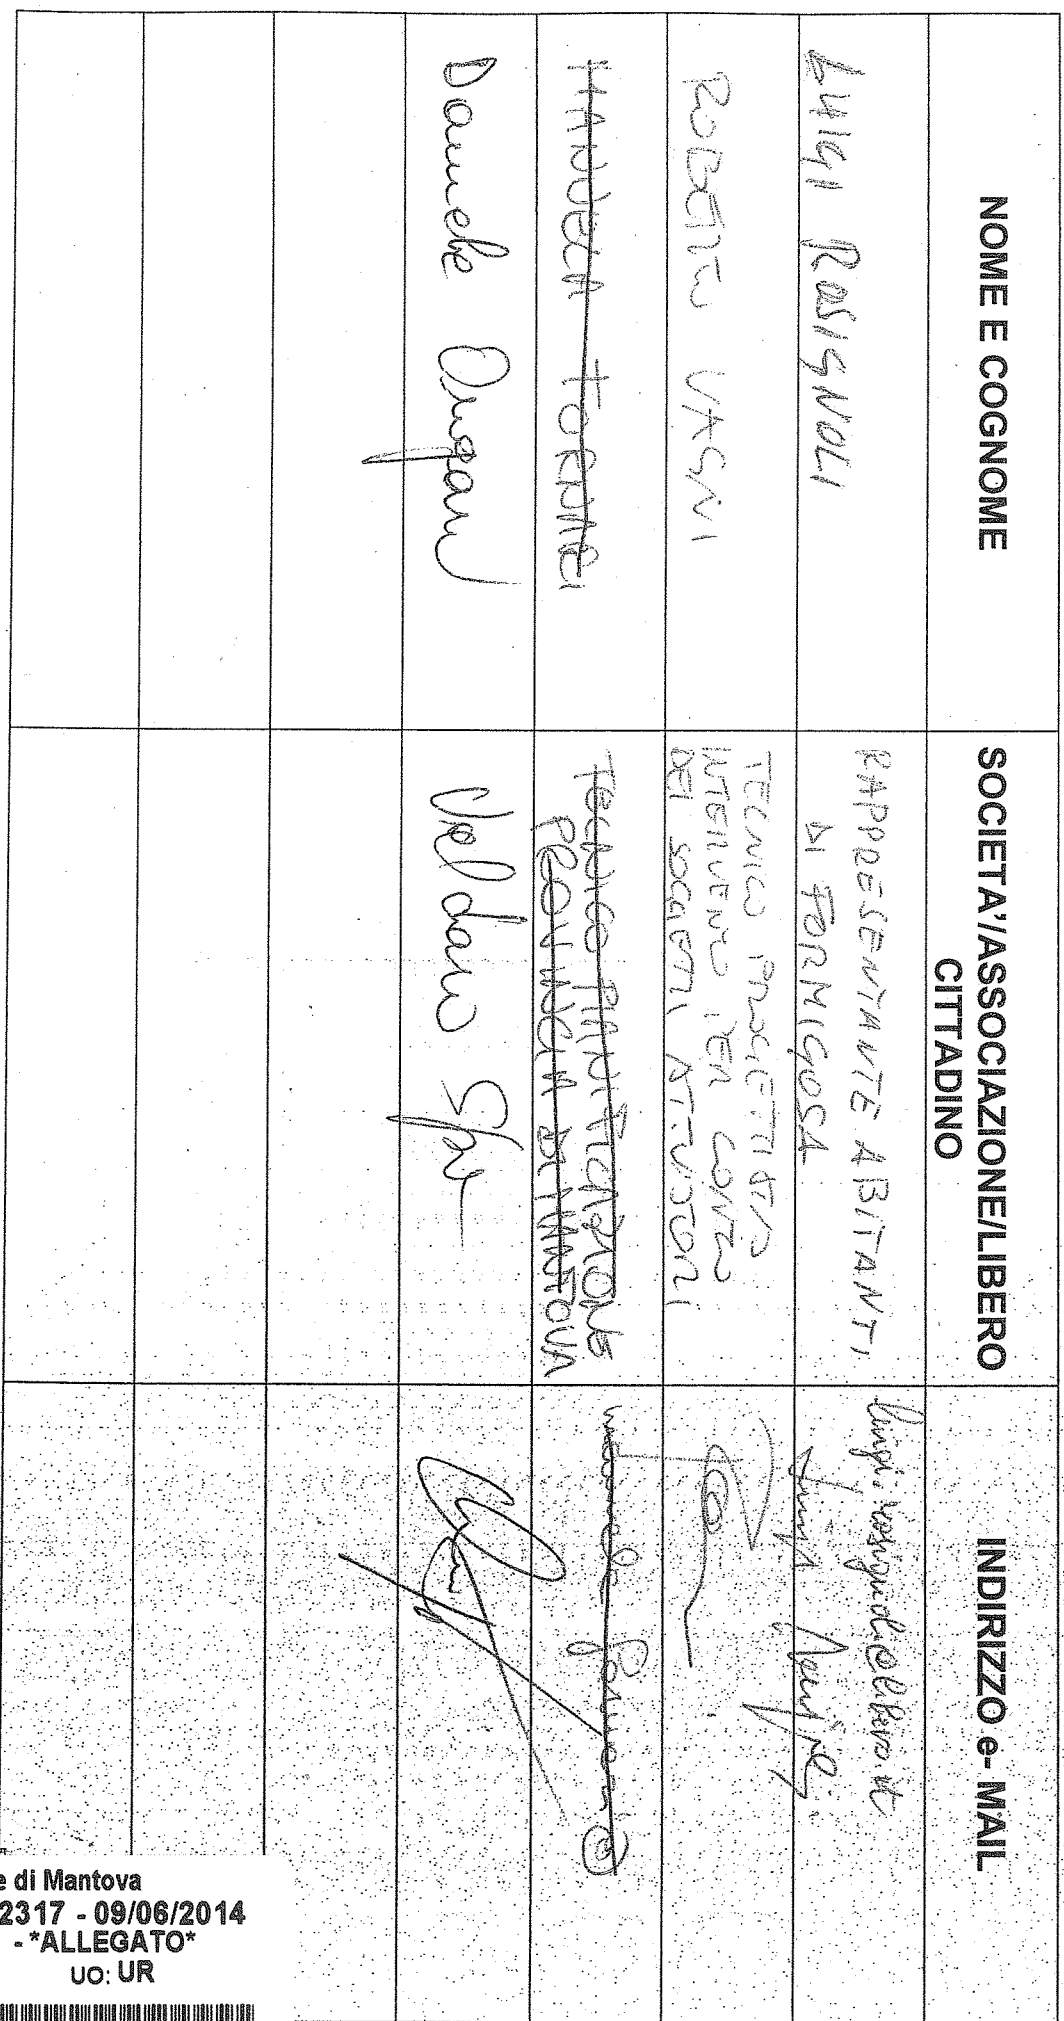 NOME E COGNOME
SOCIETA'/ASSOCIAZIONE/LIBERO
CITTADINO
INDIRIZZO e- MAIL
LUIGI ROSIGNOLI
RAPPRESENTANTE ABITANTI
DI FORMIGOSA
luigi.rosignoli@libero.it
ROBERTO VAGNI
TECNICO PROGETTISTA
INTERVENTO PER CONTO
DEI SOGGETTI ATTUATORI
MANUELA FORNARI
TECNICO PIANIFICAZIONE
PROVINCIA DI MANTOVA
Daniele
e di Mantova
2317 - 09/06/2014
- *ALLEGATO*
UO: UR